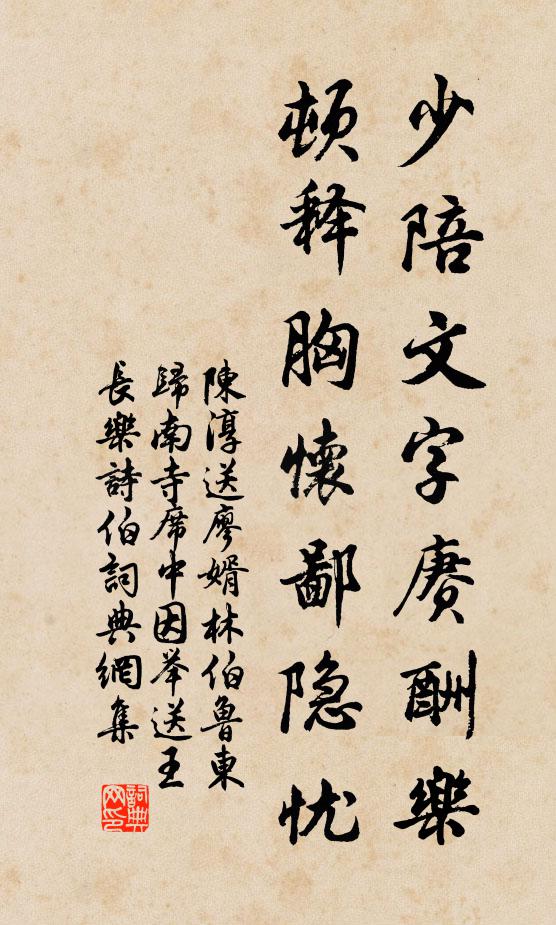 少陪文字赓酬樂
顿释胸懷鄙隐忧
陳淳送廖婿林伯魯東
歸南寺席中因举送王
長樂詩伯詞典網集
詞典网印